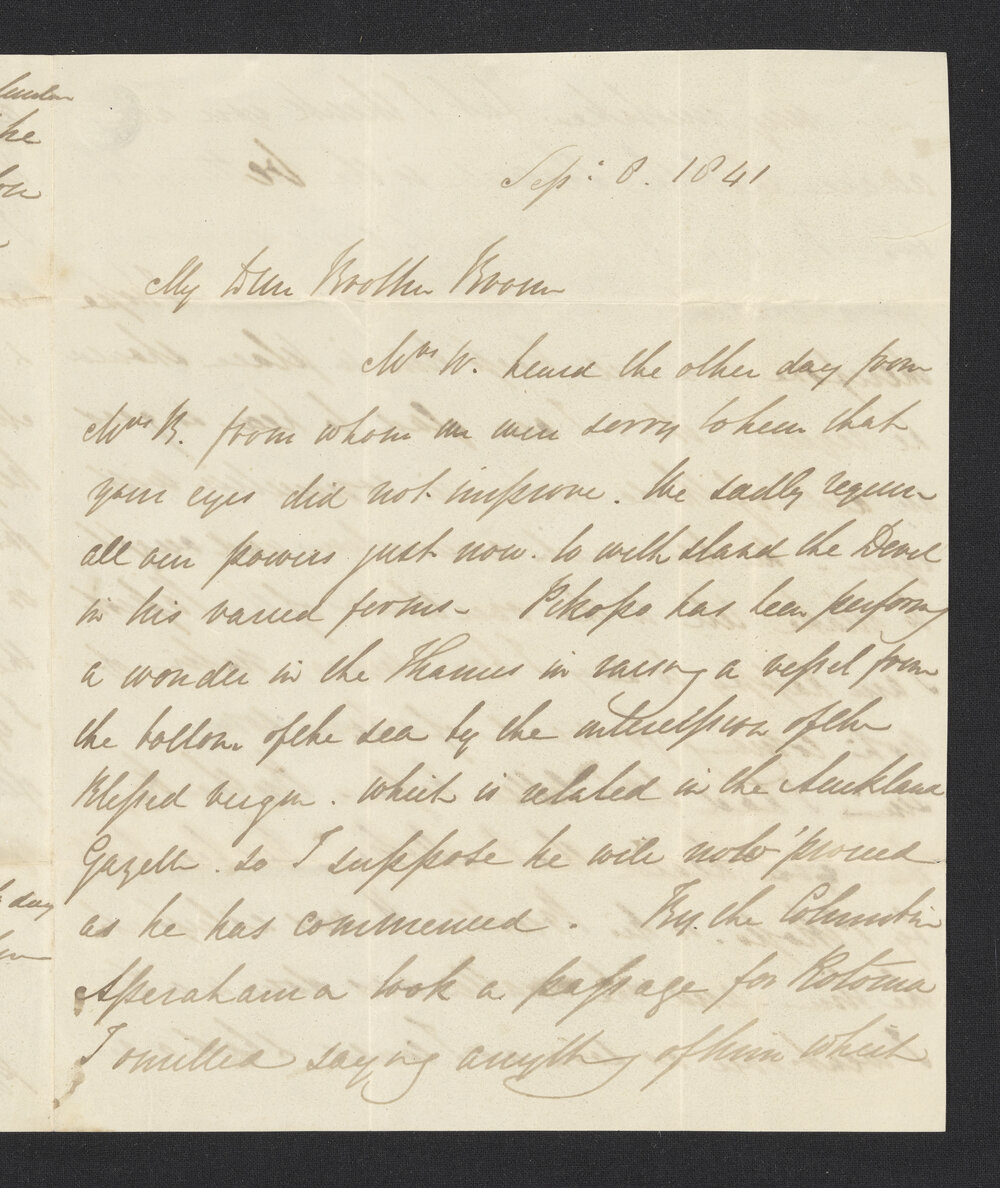 Sepr 8. 1841
My Dear Brother Brown
Mrs W. heard the other day from
Mrs B. from whom we were sorry to hear that
your eyes did not improve. We sadly require
all our powers just now. to withstand the Devil
in his varied forms - Pikopo has been performg
a wonder in the Thames in raising a vessel from
the bottom of the sea by the intercession of the
Blessed virgin. which is related in the Auckland
Gazette. so I suppose he will now proceed
as he has commenced. By the Columbine
Aperahama took a passage for Rotorua
I omitted saying anything of him which